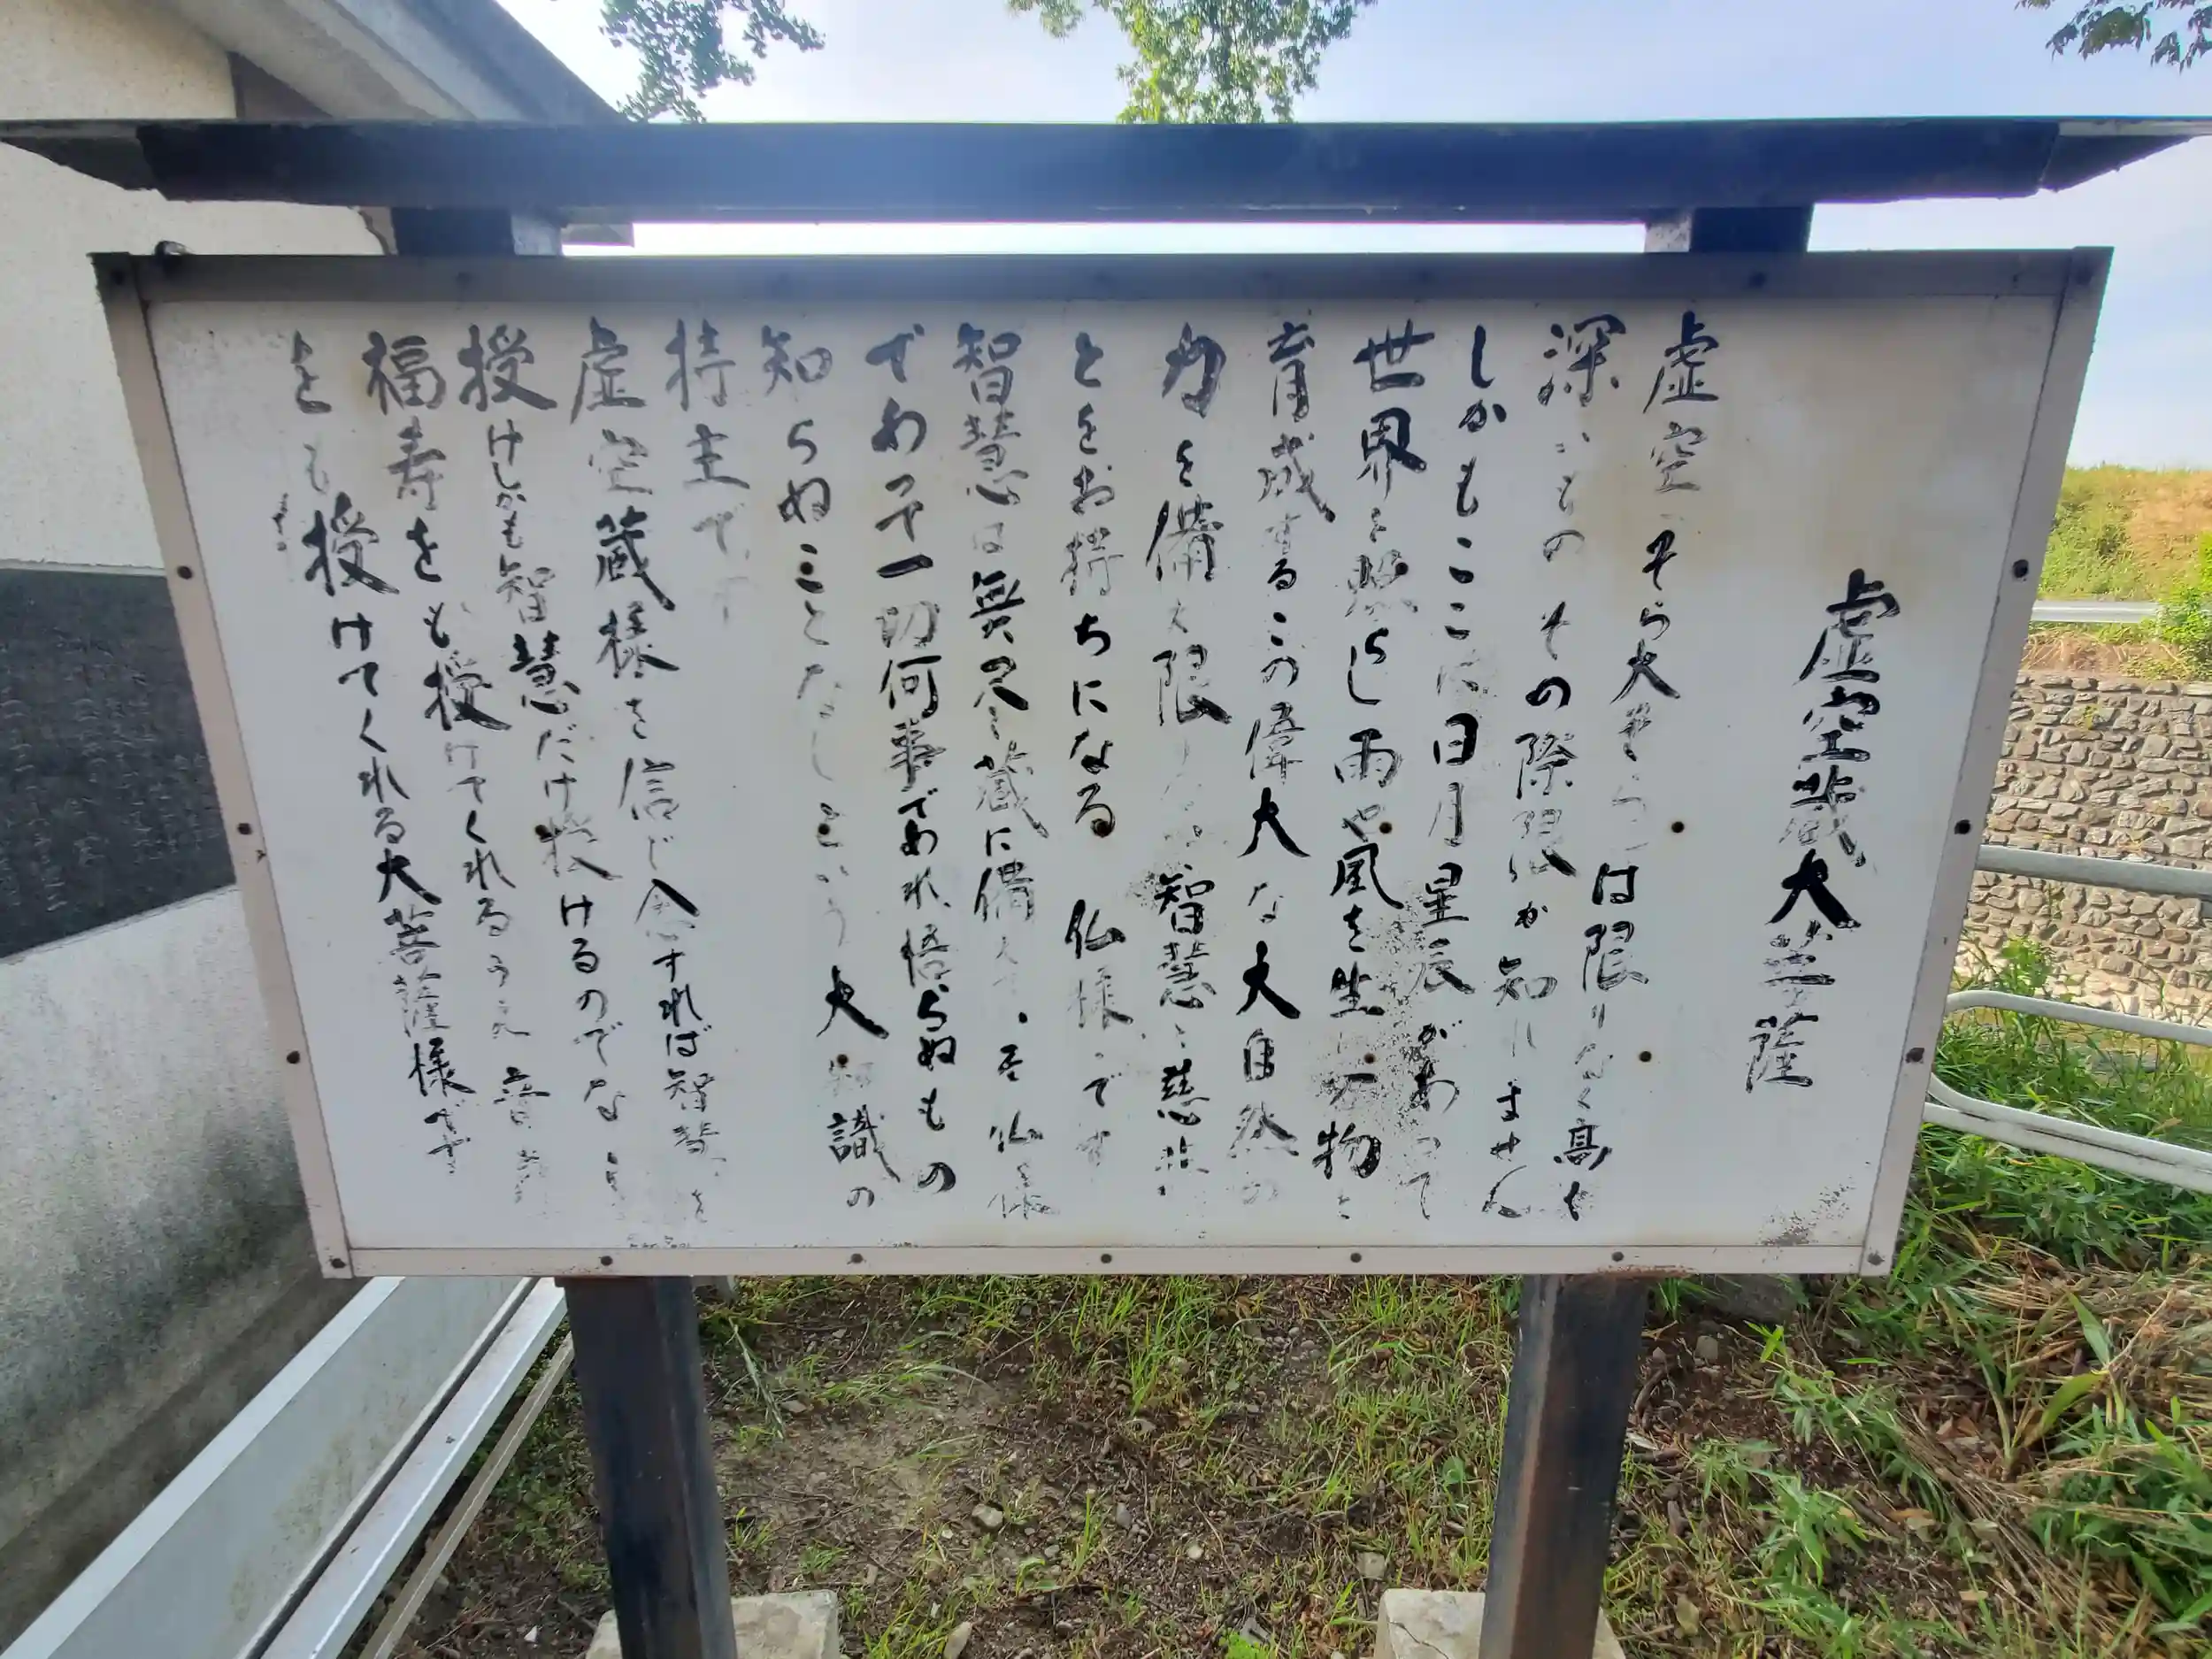 虚空蔵大菩薩
虚空 そら大ぞら は限りなく高く
深いもの その際限が知れません
しかもここに日月星辰があって
世界を照らし雨や風を生じ万物を
育成するこの偉大な大自然の
力を備え限りない智慧と慈悲
とをお持ちになる 仏様です
智慧は無尽に蔵に備え 仏様
であって一切何事であれ悟らぬもの
知らぬことなしという大知識の
持主です
虚空蔵様を信じ念ずれば智慧を
授けしかも智慧だけ授けるのでな
福寿をも授けてくれるうえ 音
をも授けてくれる大菩薩様です